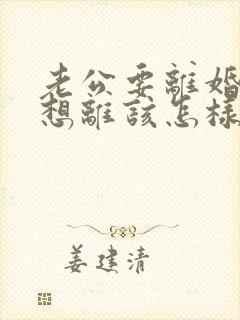 老公要離婚
想離該怎樣
姜建清